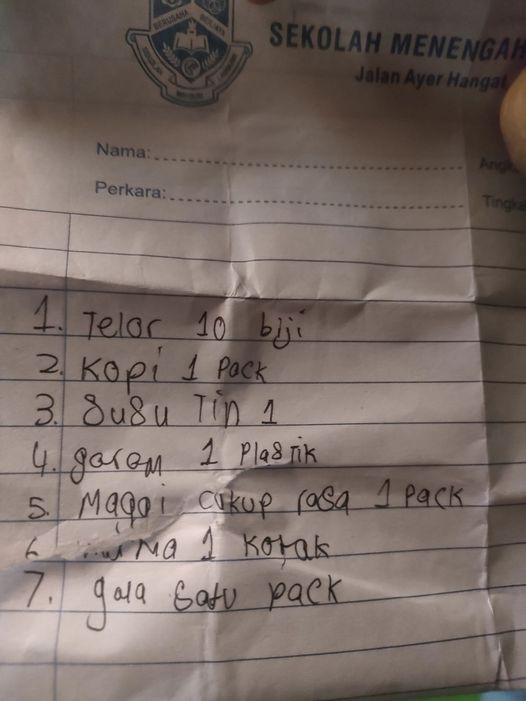 BERUSAHA BERJAYA
SEKOLAH MENENGAH
Jalan Ayer Hangat
Nama:
Perkara:
Tingka
1. Telor 10 biji
2. Kopi 1 Pack
3. SuSu Tin 1
4. garam 1 PlaSTik
5. Maggi cukup rasa 1 Pack
1 Kotak
7. gula Satu pack